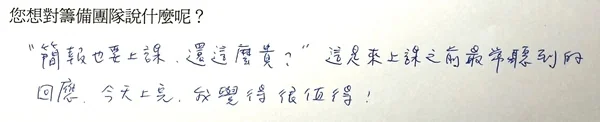 您想對籌備團隊說什麼呢？
“簡報也要上課，還這麼貴？” 這是來上課之前最常聽到的
回應，今天上完，我覺得很值得！